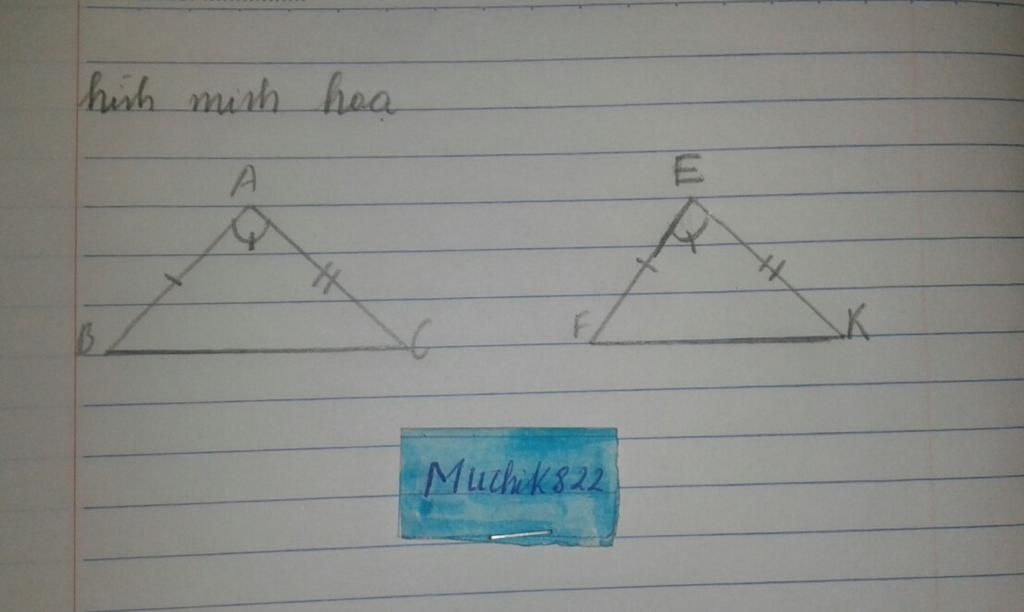 hình minh họa
A
E
B
C
F
K
Muchik822